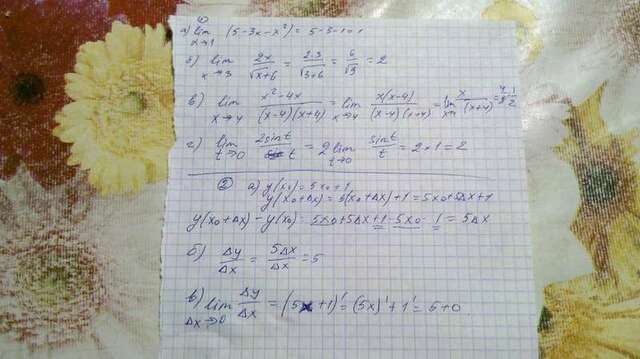 ①
а) lim x→1 (5-3x-x²) = 5-3-1=1
б) lim x→3 2x/√(x+6) = 2·3/√(3+6) = 6/√9 = 2
в) lim x→4 (x²-4x)/((x-4)(x+4)) = lim x→4 x(x-4)/((x-4)(x+4)) = lim x→4 x/(x+4) = 4/8 = 1/2
г) lim t→0 2sint/t = 2 lim t→0 sint/t = 2×1=2
② а) y(x₀) = 5x₀+1
y(x₀+Δx) = 5(x₀+Δx)+1 = 5x₀+5Δx+1
y(x₀+Δx) - y(x₀) = 5x₀+5Δx+1-5x₀-1 = 5Δx
б) Δy/Δx = 5Δx/Δx = 5
в) lim Δx→0 Δy/Δx = (5x+1)' = (5x)'+1' = 5+0